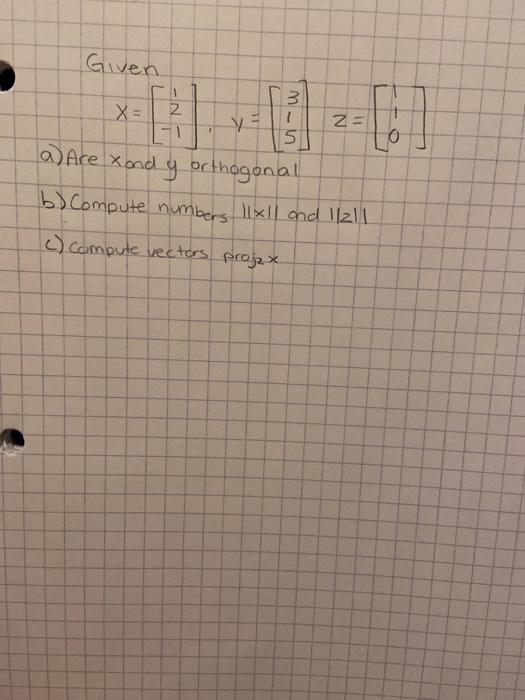 Given
x = [1 2 -1], y = [3 1 5] z = [1 1 0]
a) Are x and y orthogonal
b) Compute numbers ||x|| and ||z||
c) compute vectors proj_z x